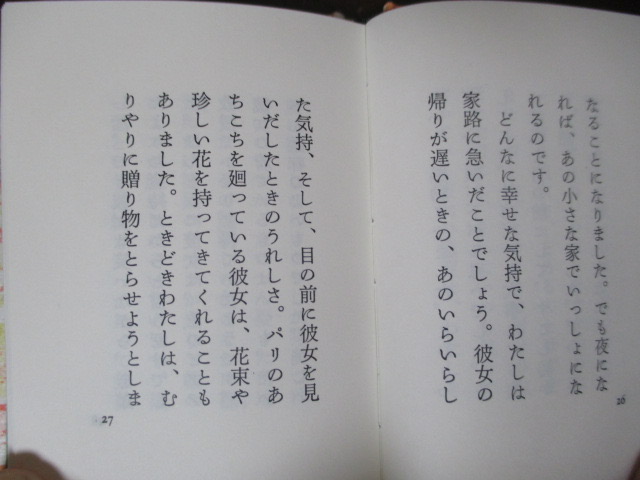 なることになりました。でも夜にな
れば、あの小さな家でいっしょにな
れるのです。
どんなに幸せな気持で、わたしは
家路に急いだことでしょう。彼女の
帰りが遅いときの、あのいらいらし
26
た気持、そして、目の前に彼女を見
いだしたときのうれしさ。パリのあ
ちこちを廻っている彼女は、花束や
珍しい花を持ってきてくれることも
ありました。ときどきわたしは、む
りやりに贈り物をとらせようとしま
27